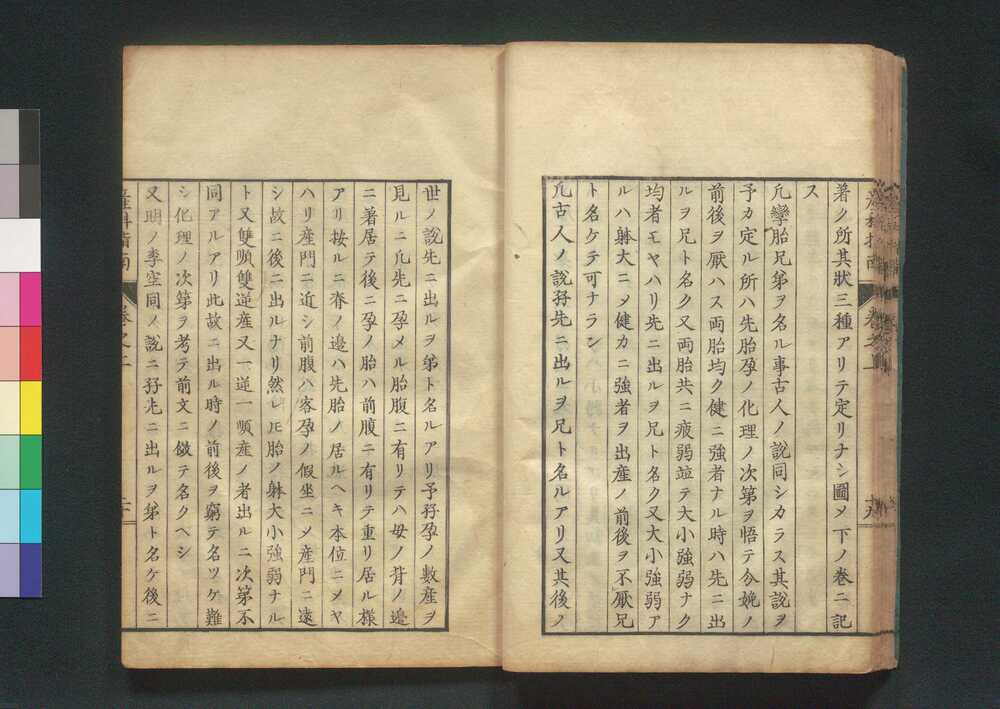 著ク所其狀三種アリテ定リナシ圖メ下ノ卷ニ記
ス
凢孿胎兄弟ヲ名ル事古人ノ說同シカラス其說ヲ
予カ定ル所ハ先胎孕ノ化理ノ次第ヲ悟テ分娩ノ
前後ヲ厭ハス両胎均ク健ニ強者ナル時ハ先ニ出
ルヲ兄ト名ク又両胎共ニ疲弱竝テ大小強弱ナク
均者モヤハリ先ニ出ルヲ兄ト名ク又大小強弱ア
ルハ躰大ニメ健カニ強者ヲ出産ノ前後ヲ不厭兄
ト名ケテ可ナラン
凢古人ノ說孖先ニ出ルヲ兄ト名ルアリ又其後ノ
世ノ說先ニ出ルヲ弟ト名ルアリ予孖孕ノ數産ヲ
見ルニ凢先ニ孕メル胎腹ニ有リテハ母ノ脊ノ邉
ニ著居テ後ニ孕ノ胎ハ前腹ニ有リテ重リ居ル様
アリ按ルニ脊ノ邉ハ先胎ノ居ルヘキ本位ニメヤ
ハリ産門ニ近シ前腹ハ客孕ノ假坐ニメ産門ニ遠
シ故ニ後ニ出ルナリ然レ𪜈胎ノ躰大小強弱ナル
ト又雙順雙逆産又一逆一順産ノ者出ルニ次第不
同アルアリ此故ニ出ル時ノ前後ヲ窮テ名ツケ難
シ化理ノ次第ヲ考テ前文ニ倣テ名クヘシ
又明ノ李空同ノ說ニ孖先ニ出ルヲ弟ト名ケ後ニ
産科指南
卷之一